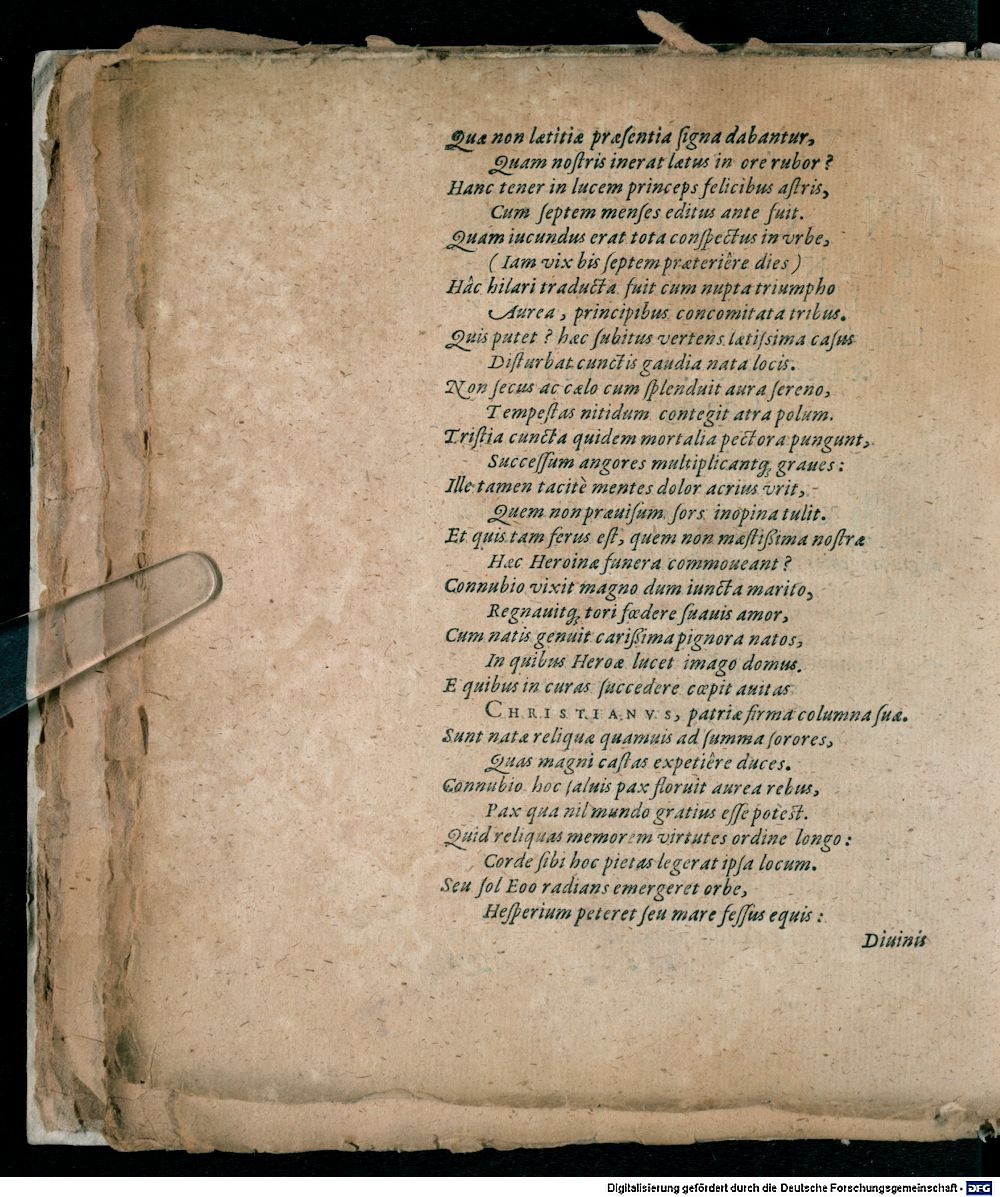 Quæ non lætitiæ præſentia ſigna dabantur,
Quam noſtris inerat lætus in ore rubor?
Hanc tener in lucem princeps felicibus aſtris,
Cum ſeptem menſes editus ante fuit.
Quam iucundus erat tota conſpectus in vrbe,
(Iam vix bis ſeptem præteriêre dies)
Hâc hilari traducta fuit cum nupta triumpho
Aurea, principibus concomitata tribus.
Quis putet? hæc ſubitus vertens lætiſsima caſus
Diſturbat cunctis gaudia nata locis.
Non ſecus ac cælo cum ſplenduit aura ſereno,
Tempeſtas nitidum contegit atra polum.
Triſtia cuncta quidem mortalia pectora pungunt,
Succeſſum angores multiplicantq́; graues:
Ille tamen tacitè mentes dolor acrius vrit,
Quem non præuiſum ſors inopina tulit.
Et quis tam ferus eſt, quem non mæſtißima noſtræ
Hæc Heroinæ funera commoueant?
Connubio vixit magno dum iuncta marito,
Regnauitq́; tori fœdere ſuauis amor,
Cum natis genuit carißima pignora natos,
In quibus Heroæ lucet imago domus.
E quibus in curas ſuccedere cœpit auitas
CHRISTIANVS, patriæ firma columna ſuæ.
Sunt natæ reliquæ quamuis ad ſumma ſorores,
Quas magni caſtas expetiêre duces.
Connubio hoc ſaluis pax floruit aurea rebus,
Pax qua nil mundo gratius eſſe poteſt.
Quid reliquas memorem virtutes ordine longo:
Corde ſibi hoc pietas legerat ipſa locum.
Seu ſol Eoo radians emergeret orbe,
Heſperium peteret ſeu mare feſſus equis:
Diuinis
Digitalisierung gefördert durch die Deutsche Forschungsgemeinschaft - DFG